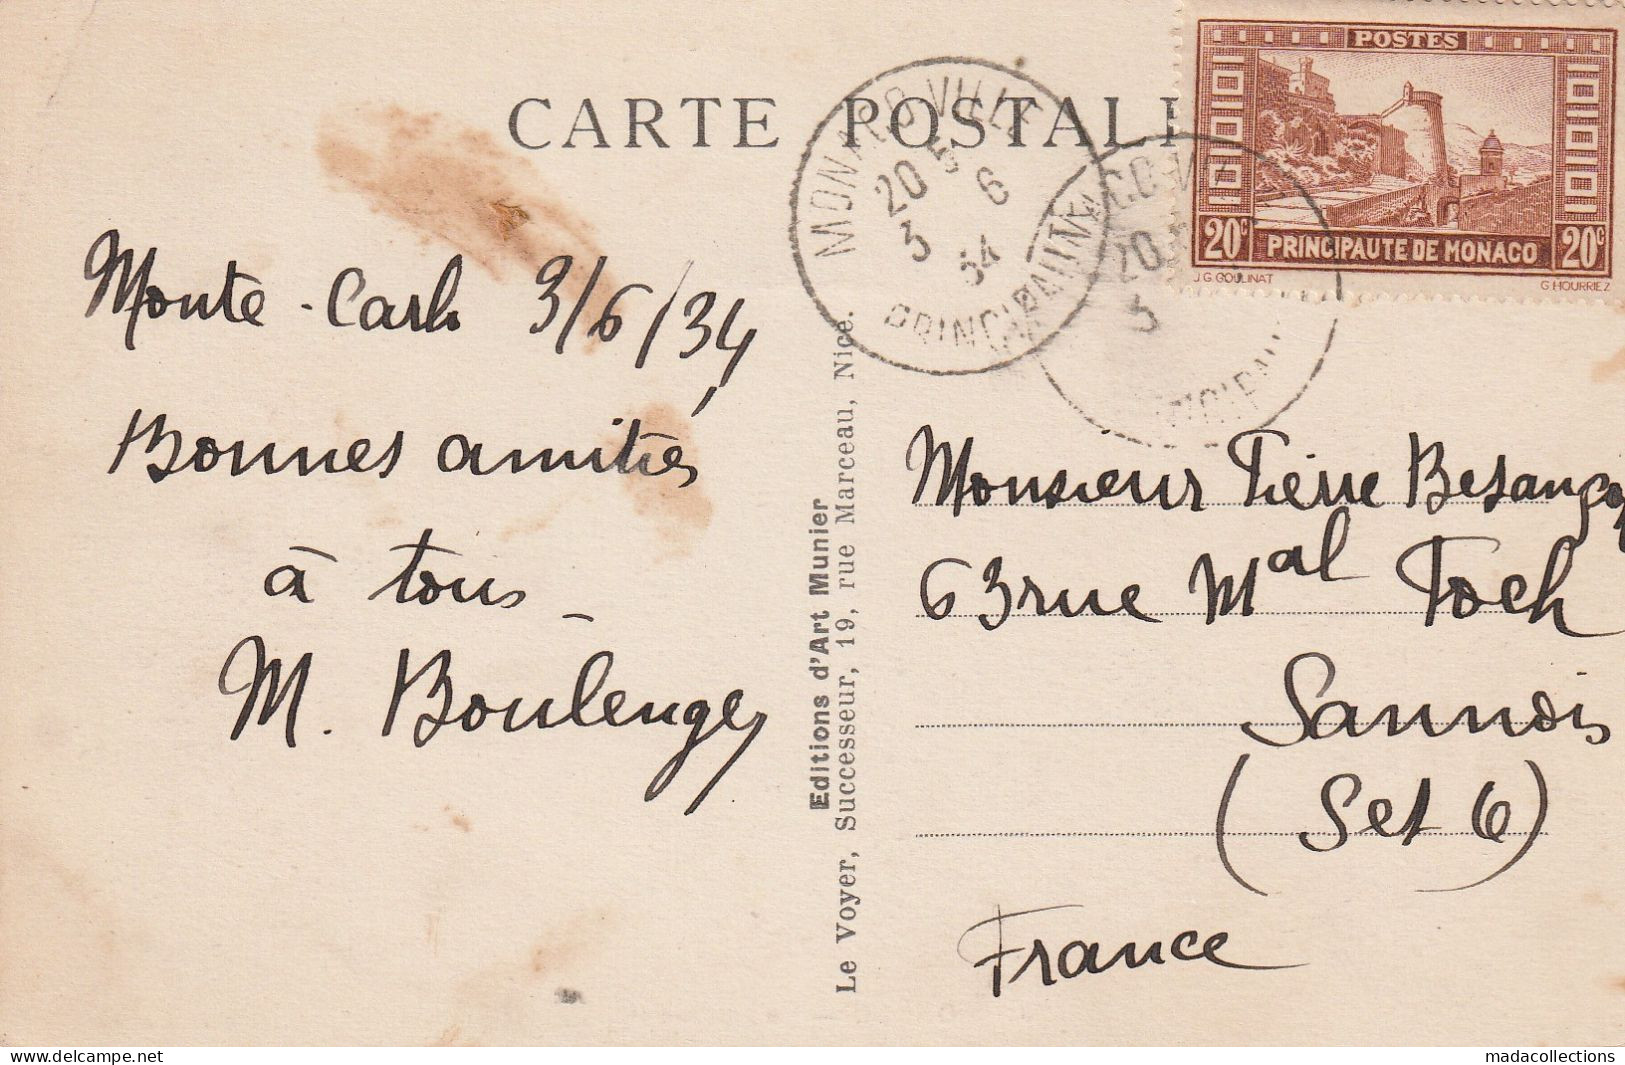 CARTE POSTALE
MONACO-VILLE
20 5
3 6
34
PRINCIPAUTÉ
20
3
POSTES
20c PRINCIPAUTE DE MONACO 20c
J.G.GOUJINAT G.HOURRIEZ
Monte-Carlo 3/6/34
Bonnes amitiés
à tous -
M. Boulenger
Editions d'Art Munier
Le Voyer, Successeur, 19, rue Marceau, Nice.
Monsieur Pierre Besançon
63 rue Mal Foch
Sannois
(Set O)
France
delcampe.net
madacollections